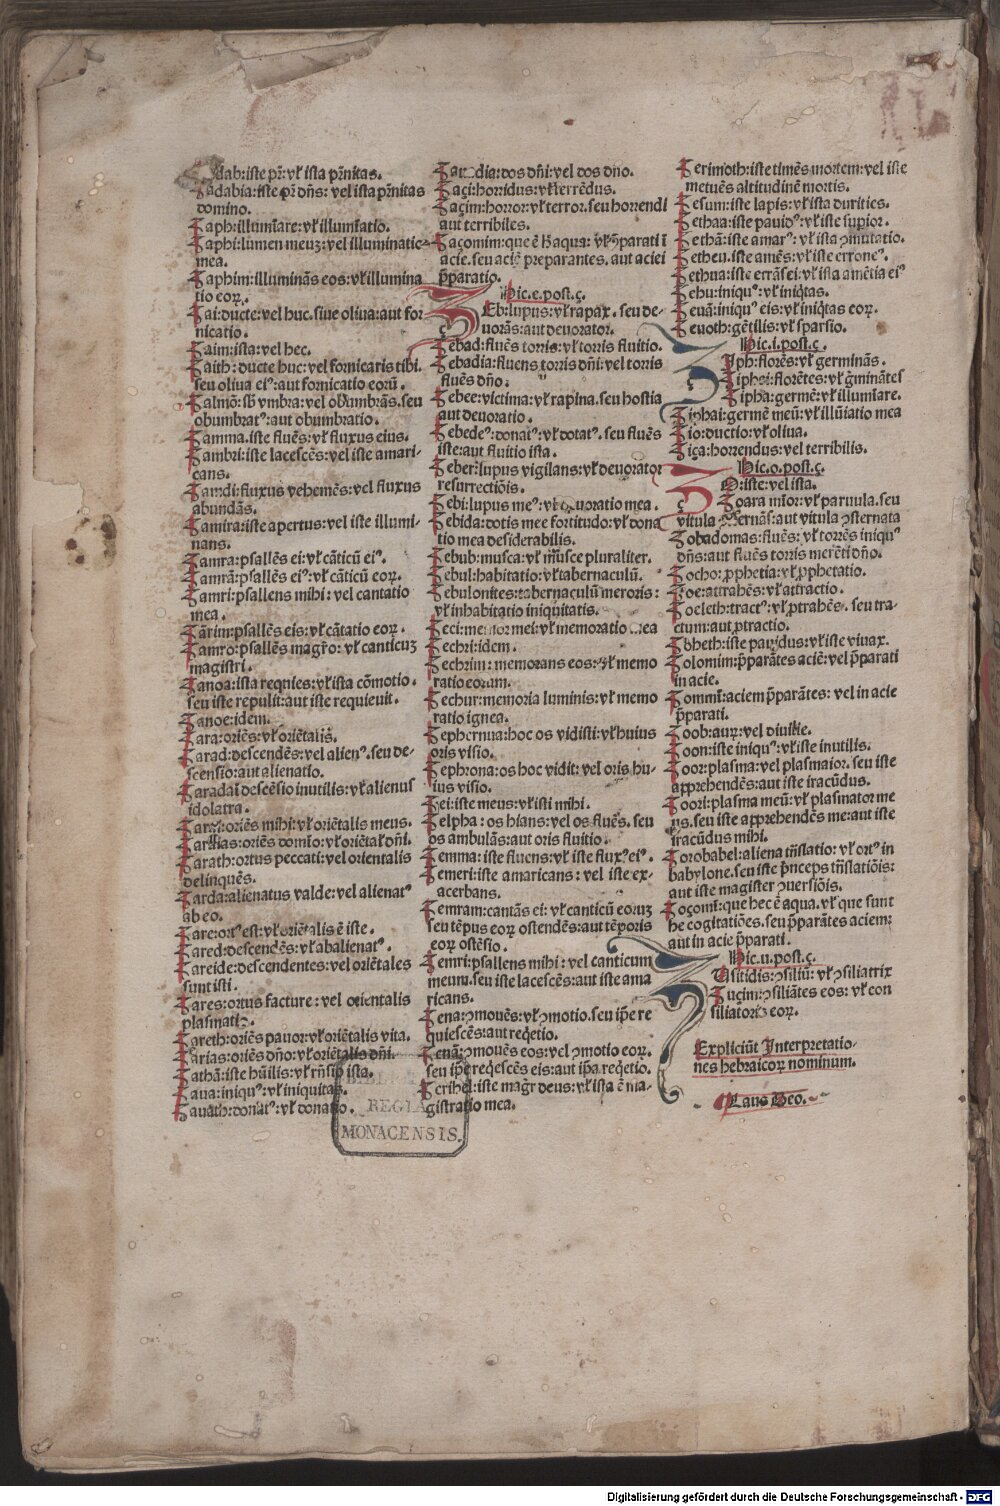 Zadab:iste pr̄:vł ista pr̄nitas.
Zadabia:iste pr̄ dn̄s: vel ista pr̄nitas
domino.
Zaph:illumīare:vł illumīatio.
Zaphi:lumen meuꝫ:vel illuminatio
mea.
Zaphim:illuminās eos:vł illumina
tio eoꝝ.
Zai:ducte:vel huc.siue oliua:aut for
nicatio.
Zaim:ista:vel hec.
Zaith:ducte huc:vel fornicaris tibi.
seu oliua eiꝰ:aut fornicatio eorū.
Zalmō:sb̄ vmbra:vel obūbrās.seu
obumbratꝰ:aut obumbratio.
Zamma.iste fluēs:vł fluxus eius.
Zambri:iste lacescēs:vel iste amari-
cans.
Zamdi:fluxus vehemēs:vel fluxus
abundās.
Zamira:iste apertus:vel iste illumi-
nans.
Zamra:psallēs ei:vł cāticū eiꝰ.
Zamrā:psallēs eiꝰ:vł cāticū eoꝝ.
Zamri:psallens mihi:vel cantatio
mea.
Zārim:psallēs eis:vł cātatio eoꝝ.
Zamro:psallēs magr̄o:vł canticuꝫ
magistri.
Zanoa:ista reqnies:vł ista cōmotio.
seu iste repulit:aut iste requieuit.
Zanoe:idem.
Zara:oriēs:vł oriētalis.
Zarad:descendēs:vel alienꝰ.seu de-
scensio:aut alienatio.
Zaradaī descēsio inutilis:vł alienus
idolatra.
Zarai:oriēs mihi:vł oriētalis meus.
Zaraias:oriēs domīo:vł oriētał dn̄i.
Zarath:ortus peccati:vel orientalis
delinquēs.
Zarda:alienatus valde:vel alienatꝰ
ab eo.
Zare:ortꝰ est:vł oriētalis ē iste.
Zared:descendēs:vł abalienatꝰ.
Zareide:descendentes:vel oriētales
sunt isti.
Zares:ortus facture:vel orientalis
plasmatis.
Zareth:oriēs pauor:vł oriētalis vita.
Zarias:oriēs dn̄o:vł oriētalis dn̄i.
Zathā:iste hūilis:vł rn̄sip̄ ista.
Zaua:iniquꝰ:vł iniquitas.
Zauath:donatꝰ:vł donatio.
Zaudia:dos dn̄i:vel dos dn̄o.
Zaçi:horridus:vł terrēdus.
Zaçim:horror:vł terror.seu horrendi
aut terribiles.
Zaçomim:que ē h̄ aqua:vł p̄parati ī
acie.seu aciē preparantes.aut aciei
p̄paratio.
Hic.e.post.ç.
ZEb:lupus:vł rapax.seu de-
uorās:aut deuorator.
Zebad:fluēs torris:vł torris fluitio.
Zebadia:fluens torris dn̄i:vel torris
fluēs dn̄o.
Zebee:victima:vł rapina.seu hostia
aut deuoratio.
Zebedeꝰ:donatꝰ:vł dotatꝰ.seu fluēs
iste:aut fluitio ista.
Zeber:lupus vigilans:vł deuorator
resurrectiōis.
Zebi:lupus meꝰ:vł deuoratio mea.
Zebida:dotis mee fortitudo:vł dona
tio mea desiderabilis.
Zebub:musca:vł musce pluraliter.
Zebul:habitatio:vł tabernaculū.
Zebulonites:tabernaculū meroris:
vł inhabitatio iniquitatis.
Zeci:memor mei:vł memoratio mea
Zechri:idem.
Zechrim:memorans eos:vł memo
ratio eorum.
Zechur:memoria luminis:vł memo
ratio ignea.
Zephernua:hoc os vidisti:vł huius
oris visio.
Zephrona:os hoc vidit:vel oris hu-
ius visio.
Zei:iste meus:vł isti mihi.
Zelpha:os hians:vel os fluēs.seu
os ambulās:aut oris fluitio.
Zemma:iste fluens:vł iste fluxꝰ eiꝰ.
Zemeri:iste amaricans:vel iste ex-
acerbans.
Zemram:cantās ei:vł canticū eoruꝫ
seu tēpus eoꝝ ostendēs:aut tēporis
eoꝝ ostēsio.
Zemri:psallens mihi:vel canticum
meum.seu iste lacescēs:aut iste ama
ricans.
Zena:ꝯmouēs:vł ꝯmotio.seu ip̄e re
quiescēs:aut reqetio.
Zenā:ꝯmouēs eos:vel ꝯmotio eoꝝ.
seu ip̄e reqescēs eis:aut ip̄a reqetio.
Zerihel:iste magr̄ deus:vł ista ē ma-
gistratio mea.
Zerimoth:iste timēs mortem:vel iste
metuēs altitudinē mortis.
Zesum:iste lapis:vł ista durities.
Zethaa:iste pauidꝰ:vł iste supior.
Zethā:iste amarꝰ:vł ista ꝯmutatio.
Zetheu:iste amēs:vł iste erroneꝰ.
Zethua:iste errās ei:vł ista amētia eiꝰ
Zehu:iniquꝰ:vł iniqtas.
Zeuā:iniquꝰ eis:vł iniqtas eoꝝ.
Zeuoth:gētilis:vł sparsio.
Hic.i.post.ç.
ZIph:florēs:vł germinās.
Ziphei:florētes:vł ḡminātes
Zipha:germē:vł illumīare.
Ziphai:germē meū:vł illūiatio mea
Zio:ductio:vł oliua.
Ziça:horrendus:vel terribilis.
Hic.o.post.ç.
ZO:iste:vel ista.
Zoara mīor:vł paruula.seu
vitula ꝯsternās:aut vitula ꝯsternata
Zobadomas:fluēs:vł torrēs iniquꝰ
dn̄s:aut fluēs torris merēti dn̄o.
Zocho:ꝓphetia:vł ꝓphetatio.
Zoe:attrahēs:vł attractio.
Zoeleth:tractꝰ:vł ꝓtrahēs.seu tra-
ctum:aut ꝓtractio.
Zbheth:iste pauidus:vł iste viuax.
Zolomim:p̄parātes aciē:vel p̄parati
in acie.
Zommi:aciem p̄parātes:vel in acie
p̄parati.
Zoob:auꝝ:vel diuisie.
Zoon:iste iniquꝰ:vł iste inutilis.
Zoor:plasma:vel plasmator.seu iste
apprehendēs:aut iste iracūdus.
Zoori:plasma meū:vł plasmator me
us.seu iste apprehendēs me:aut iste
iracūdus mihi.
Zorobabel:aliena trn̄slatio:vł ortꝰ in
babylone.seu iste p̄nceps trn̄slatiōis:
aut iste magister ꝯuersiōis.
Zoçomī:que hec ē aqua.vł que sunt
he cogitatiōes.seu p̄parātes aciem:
aut in acie p̄parati.
Hic.u.post.ç.
ZUsitidis:ꝯsiliū:vł ꝯsiliatrix
Zuçim:ꝯsiliātes eos:vł con
siliatoris eoꝝ.
Expliciūt Interpretatio-
nes hebraicoꝝ nominum.
Laus Deo.
REGIA
MONACENSIS.
Digitalisierung gefördert durch die Deutsche Forschungsgemeinschaft - DFG